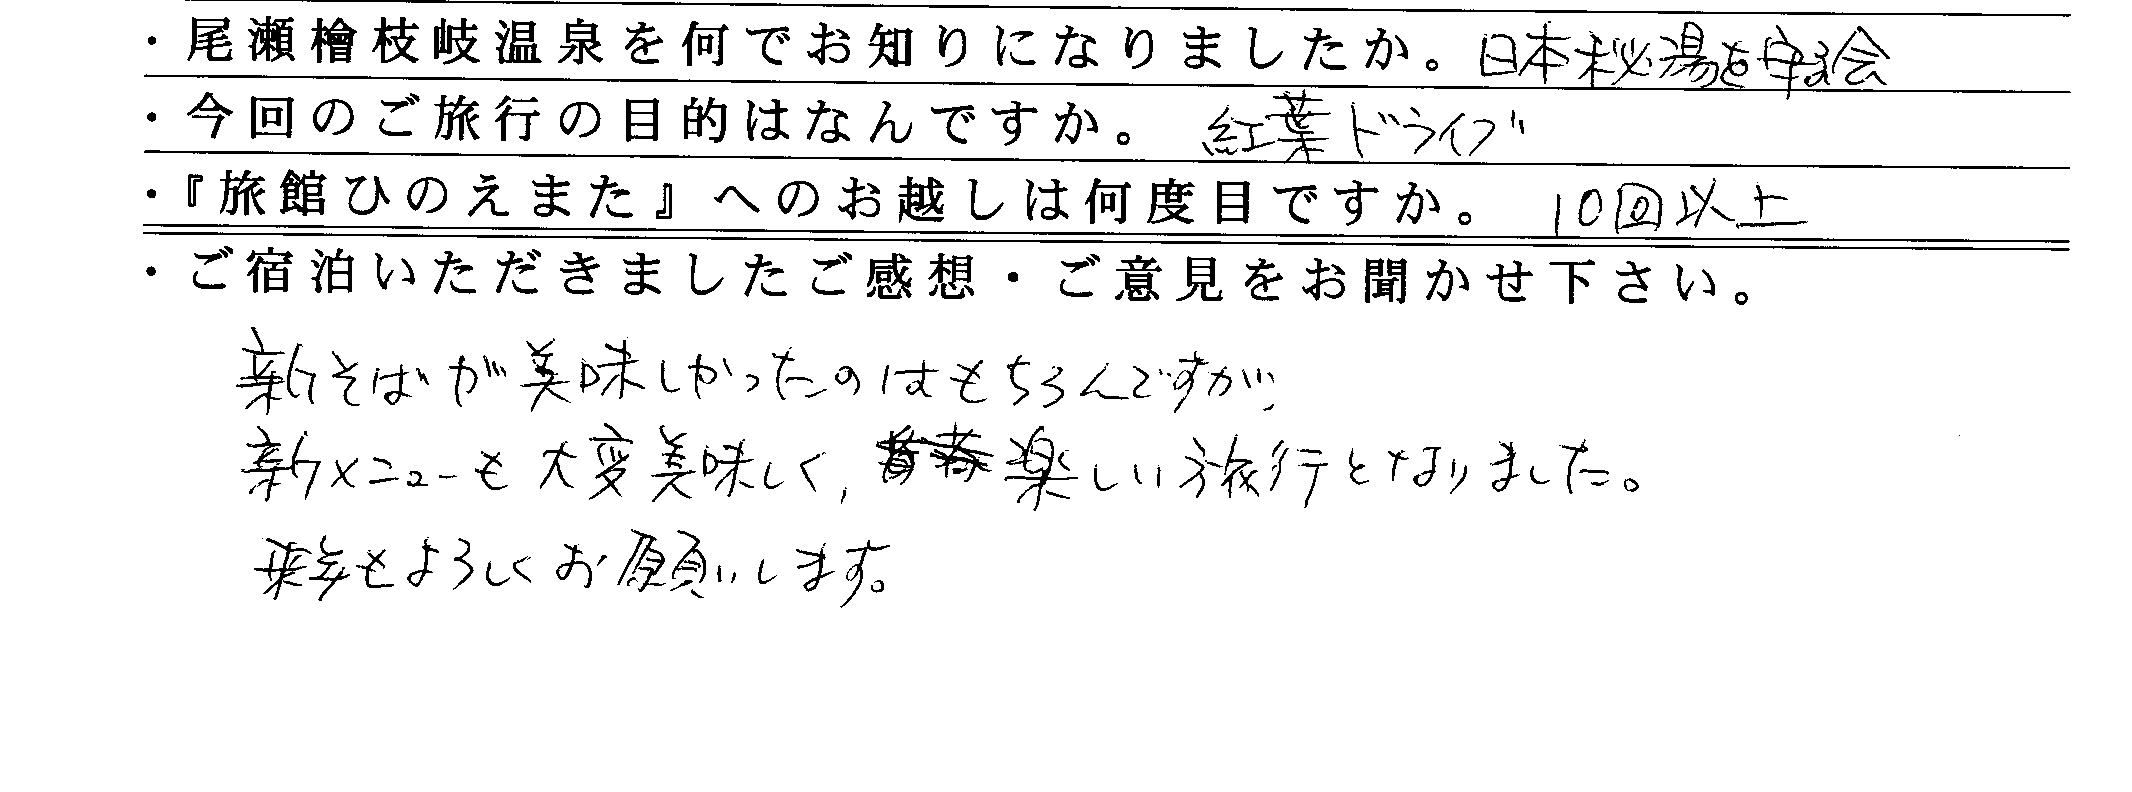 ・尾瀬檜枝岐温泉を何でお知りになりましたか。日本秘湯を守る会
・今回のご旅行の目的はなんですか。 紅葉ドライブ
・『旅館ひのえまた』へのお越しは何度目ですか。 10回以上
・ご宿泊いただきましたご感想・ご意見をお聞かせ下さい。
新そばが美味しかったのはもちろんですが、
新メニューも大変美味しく、楽しい旅行となりました。
来年もよろしくお願いします。